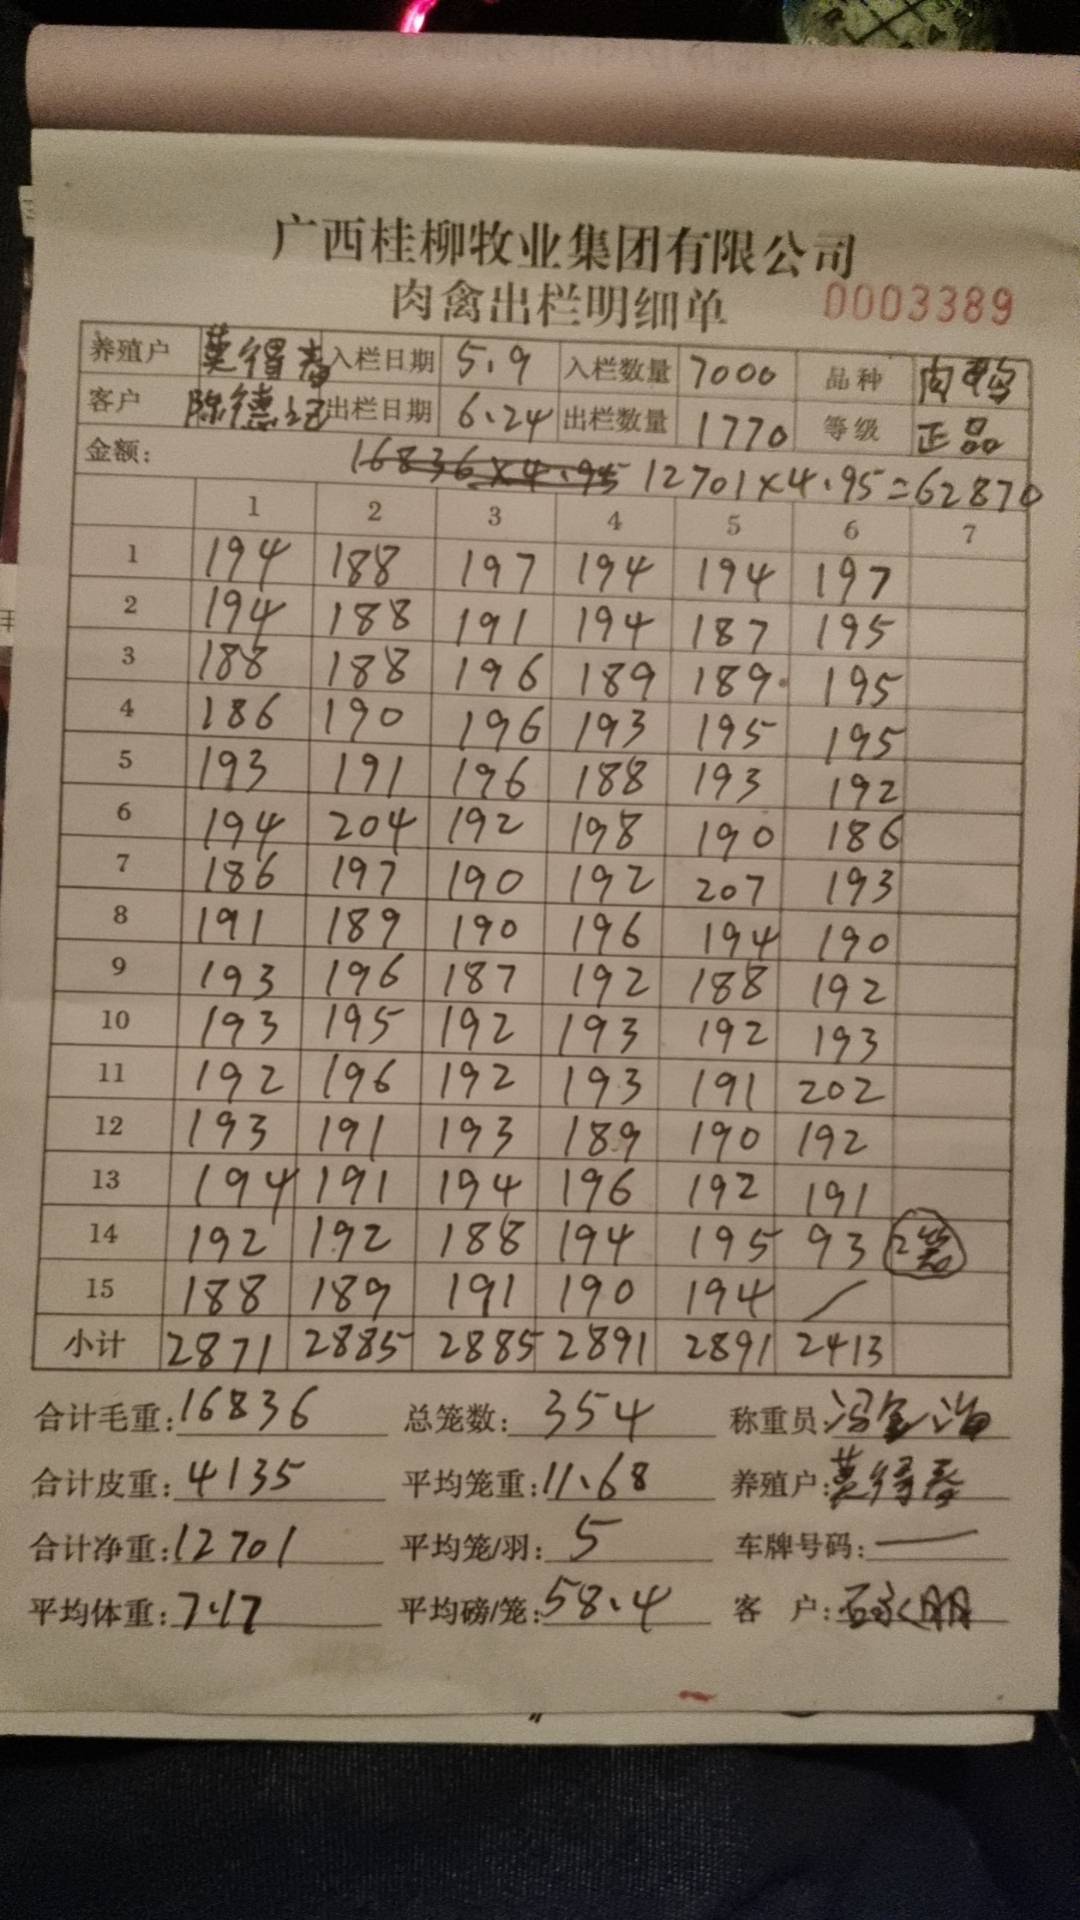 广西桂柳牧业集团有限公司
肉禽出栏明细单 0003389
养殖户 莫得春 入栏日期 5.9 入栏数量 7000 品种 肉鸭
客户 陈德 出栏日期 6.24 出栏数量 1770 等级 正品
金额: 16836×4.95 12701×4.95=62870
1 2 3 4 5 6 7
1 194 188 197 194 194 197
2 194 188 191 194 187 195
3 188 188 196 189 189 195
4 186 190 196 193 195 195
5 193 191 196 188 193 192
6 194 204 192 198 190 186
7 186 197 190 192 207 193
8 191 189 190 196 194 190
9 193 196 187 192 188 192
10 193 195 192 193 192 193
11 192 196 192 193 191 202
12 193 191 193 189 190 192
13 194 191 194 196 192 191
14 192 192 188 194 195 93 2笼
15 188 189 191 190 194 /
小计 2871 2885 2885 2891 2891 2413
合计毛重: 16836 总笼数: 354 称重员:
合计皮重: 4135 平均笼重: 11.68 养殖户: 莫得春
合计净重: 12701 平均笼/羽: 5 车牌号码: —
平均体重: 7.17 平均磅/笼: 58.4 客 户: